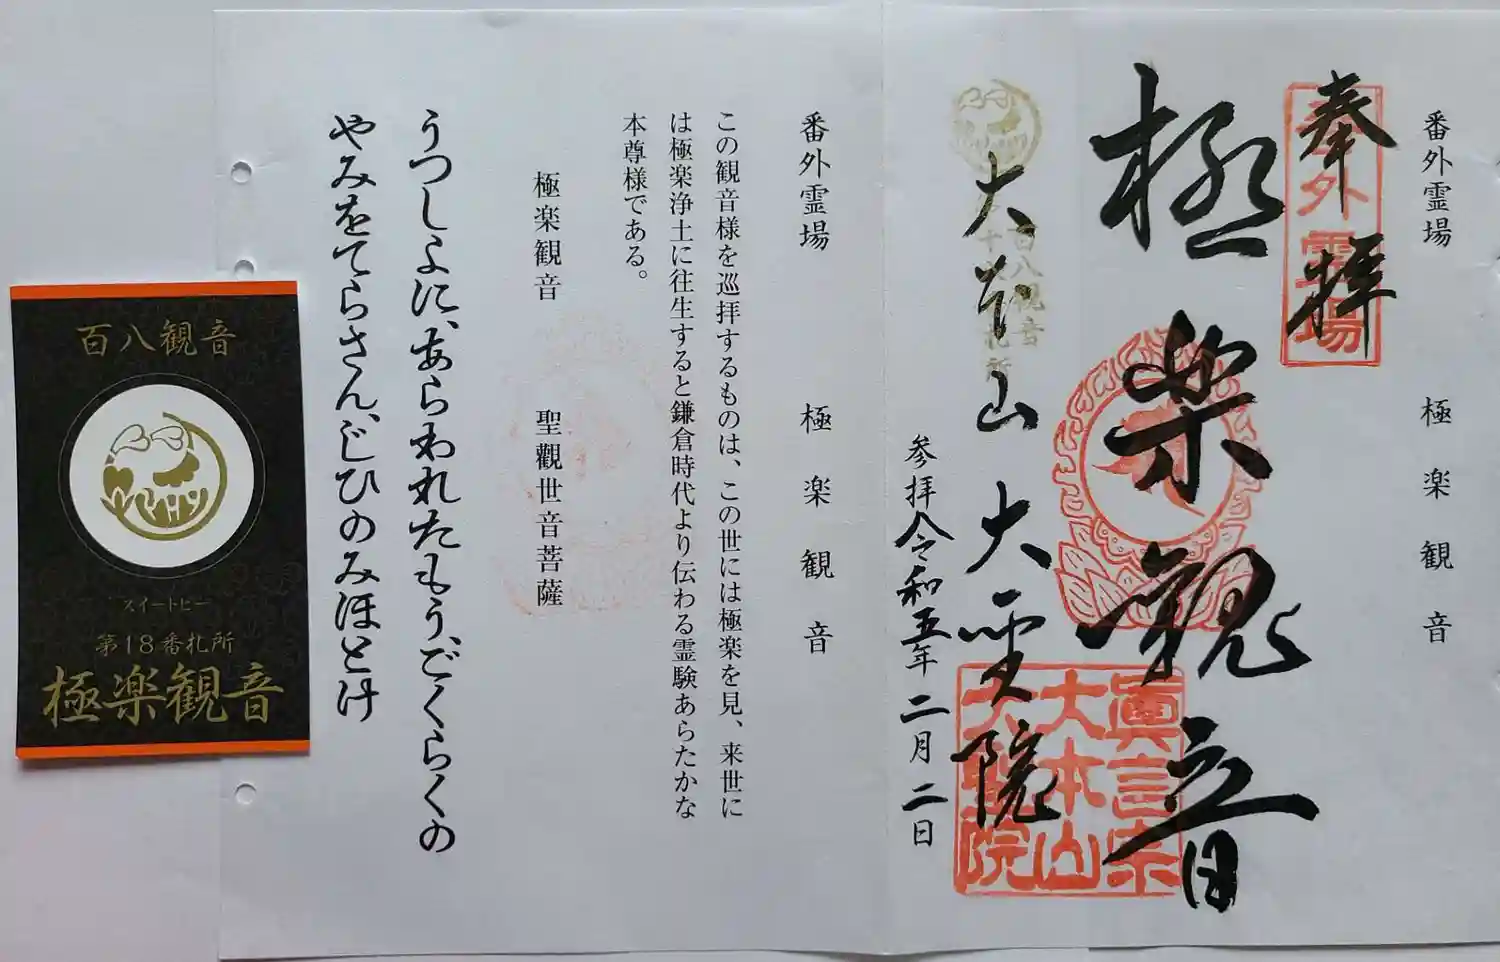 番外霊場 極楽観音
奉拝
番外霊場
極楽観音
大本山大聖院
百八観音
眞言宗
大本山
院
参拝令和五年二月二日
番外霊場 極楽観音
この観音様を巡拝するものは、この世には極楽を見、来世に
は極楽浄土に往生すると鎌倉時代より伝わる霊験あらたかな
本尊様である。
極楽観音 聖觀世音菩薩
うつしよに、あらわれたもう、ごくらくの
やみをてらさん、じひのみほとけ
百八観音
スイートピー
第18番札所
極楽観音